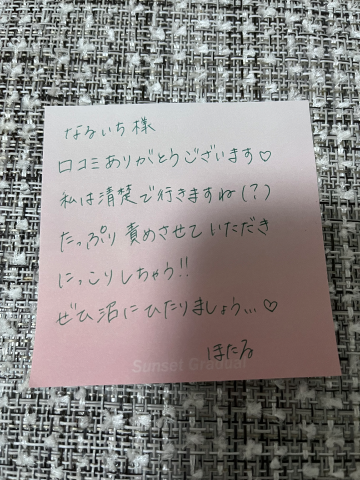 なるいち様
口コミありがとうございます♡
私は清楚で行きますね(?)
たっぷり責めさせていただき
にっこりしちゃう!!
ぜひ沼にひたりましょう...♡
ほたる
Sunset Gradual